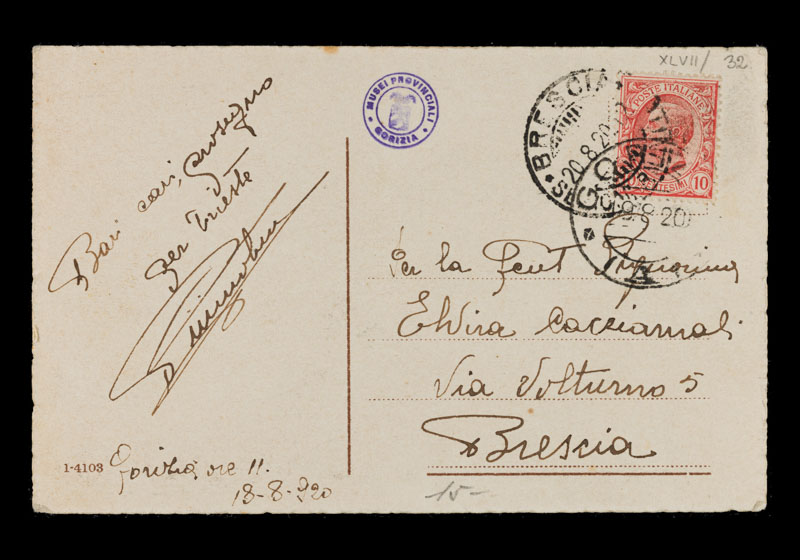 XLVII/ 32
MUSEI PROVINCIALI
GORIZIA
BRESCIA
20.8.20
POSTE ITALIANE
CENTESIMI 10
GO
IA
8.20
Baci cari, proseguo
per Trieste
Per la Gent Signorina
Elvira Cacciamali
Via Volturno 5
Brescia
1-4103
Gorizia, ore 11.
18-8-920
15-